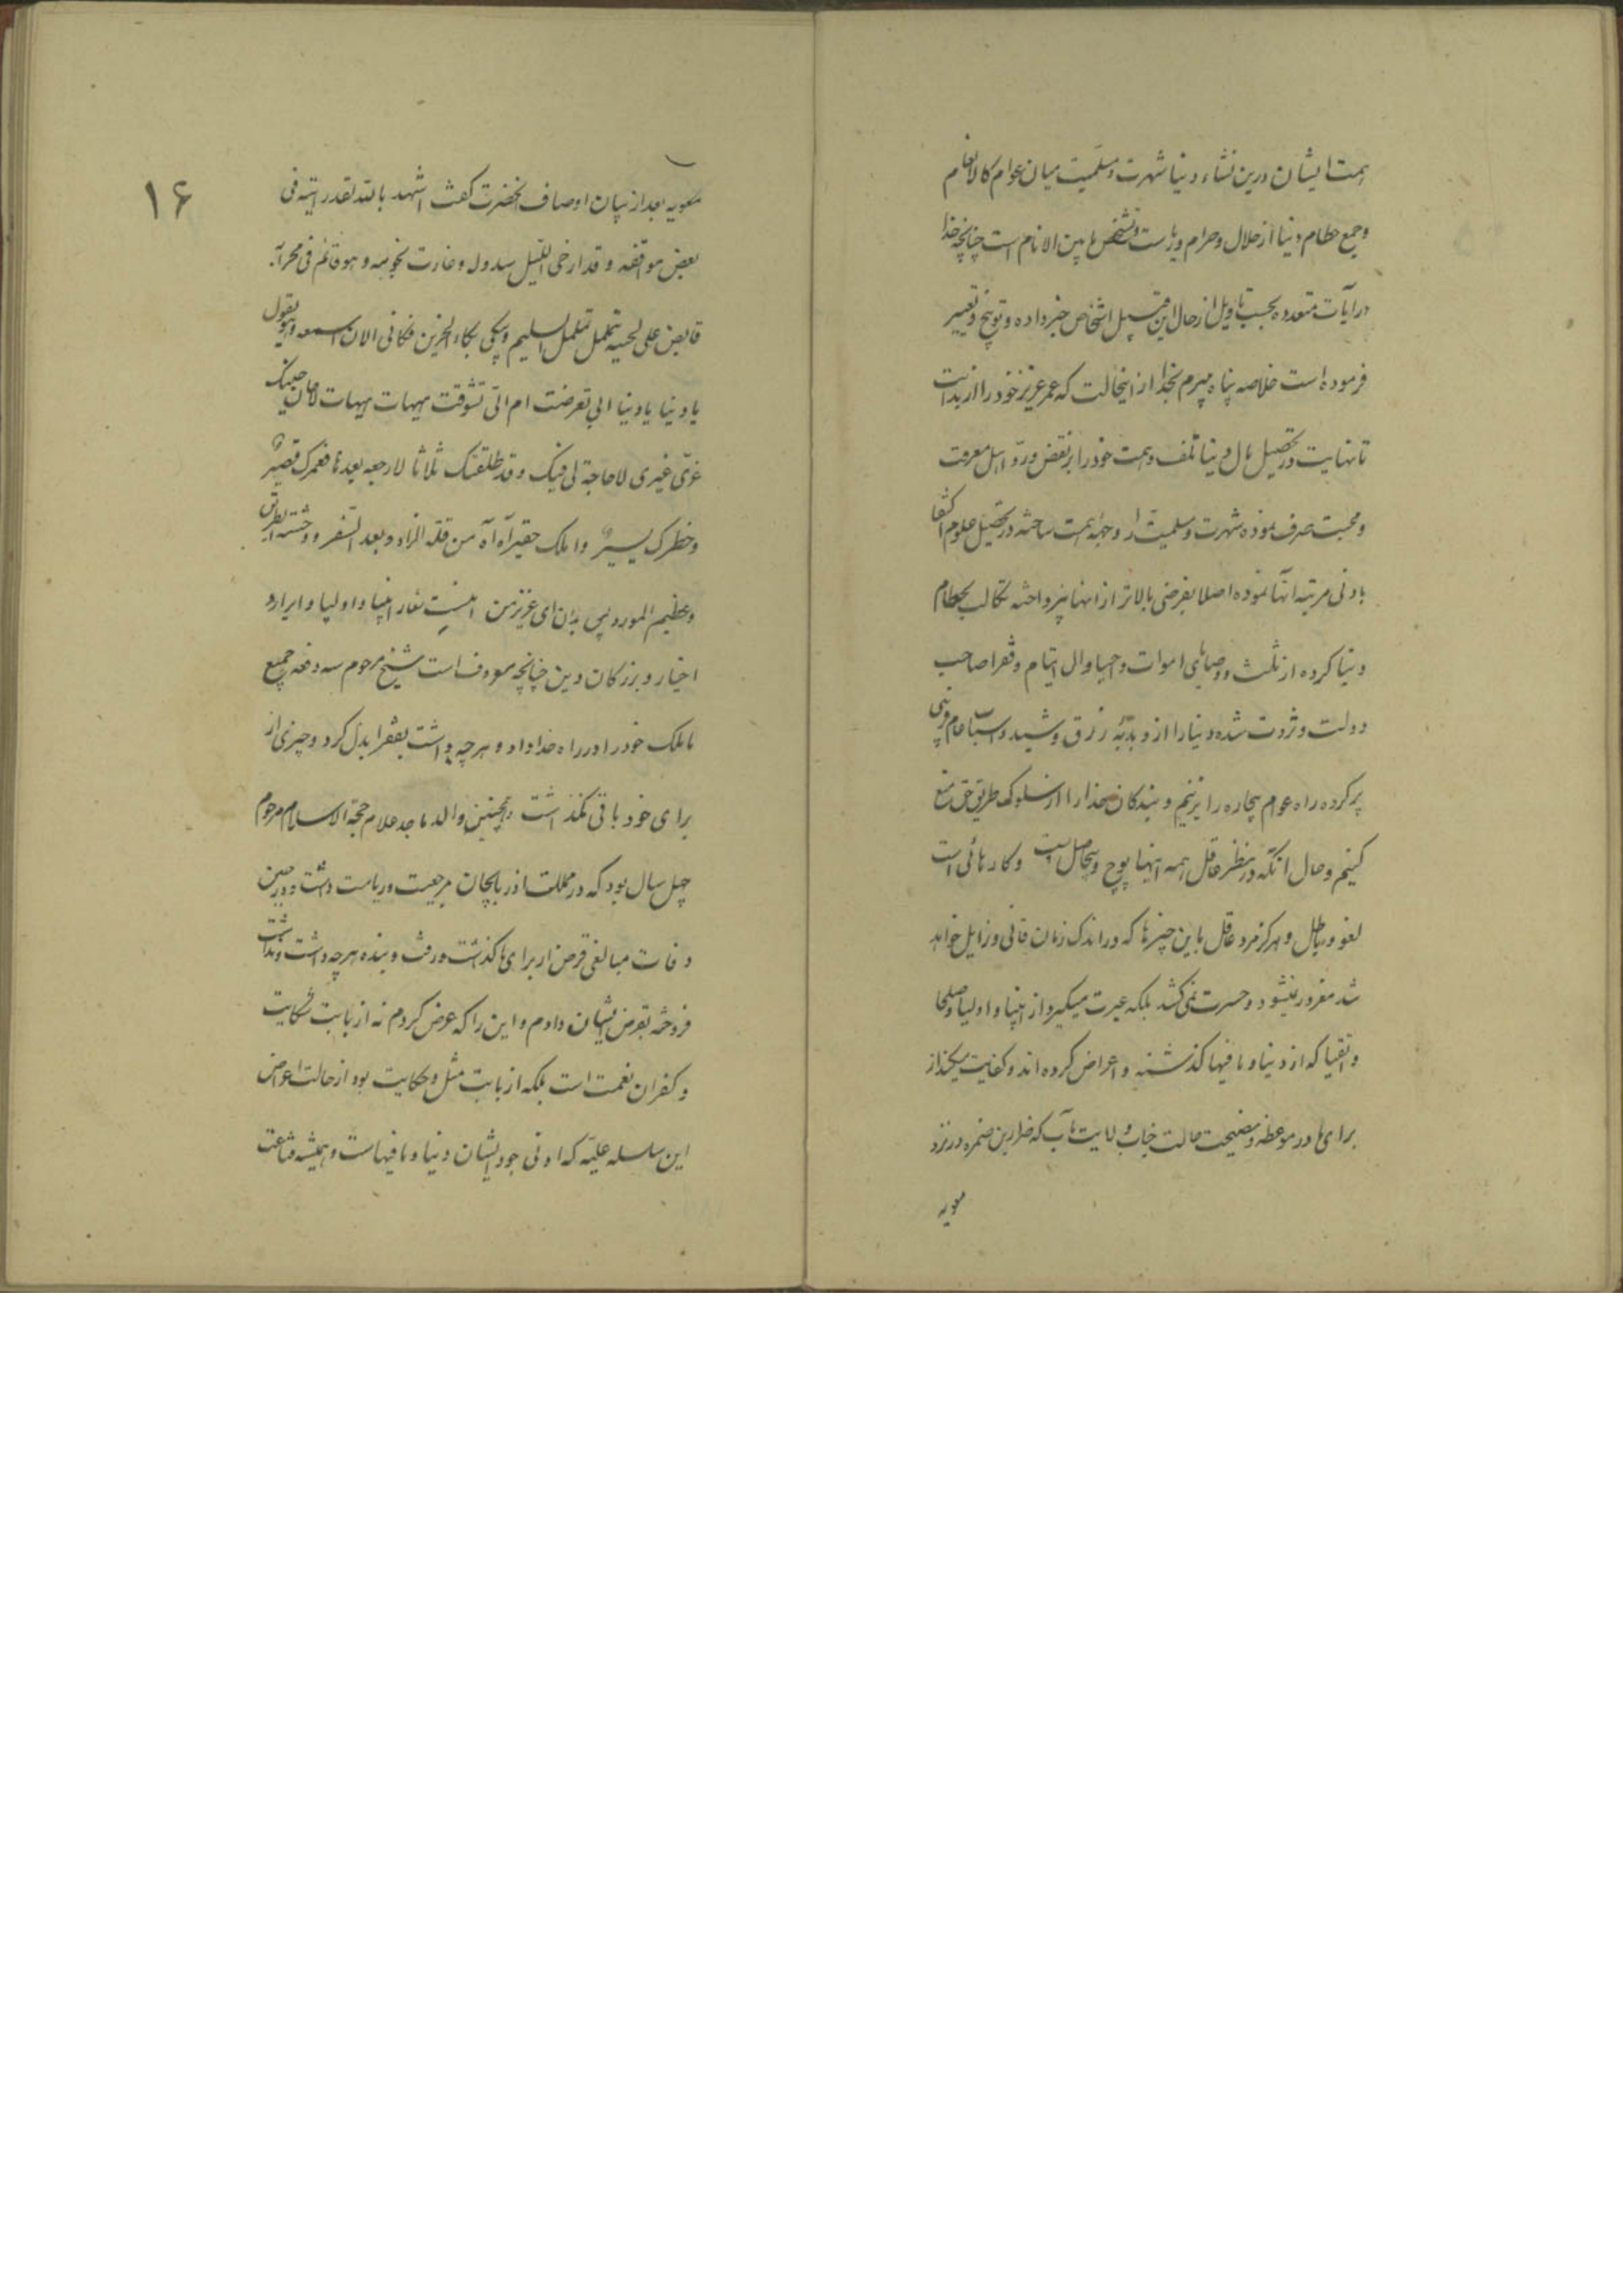 همت ایشان درین نشاء دنیا شهرت و مسلمیت میان عوام کالانعام
وجمع حطام دنیا از حلال وحرام وریاست وتشخص ما بین الانام است چنانچه خدا
در آیات متعدده بحسب تاویل از حال این قبیل اشخاص خبر داده و توبیخ وتعییر
فرموده است خلاصه پناه میبرم بخدا از اینحالت که عمر عزیز خود را از بدایت
تا نهایت در تحصیل مال دنیا تلف وهمت خود را بر نقض ورد اهل معرفت
ومحبت صرف نموده شهرت و مسلمیت را وجهه همت ساخته در تحصیل علوم اکتفا
بادنی مرتبه آنها نموده اصلا بغرضی بالاتر از اینها نپرداخته تکالب بحطام
دنیا کرده از ثلث ووصایای اموات و احیا و مال ایتام وفقرا صاحب
دولت وثروت شده دنیا را از و بدبه زرق وشید واسباب عام فریبی
پر کرده راه عوام بیچاره را بزنیم وبندکان خدا را از سلوک طریق حق منع
کنیم وحال آنکه در نظر عاقل همه اینها پوچ وبیحاصل است وکارهائی است
لغو وباطل وهرکز مرد عاقل باین چیزها که در اندک زمان فانی وزایل خواهد
شد مغرور نمیشود وحسرت نمی‌کشد بلکه عبرت میکیرد از انبیا واولیا وصلحا
واتقیا که از دنیا وما فیها کذشته و اعراض کرده‌اند وکفایت میکند از
برای ما در موعظه ونصیحت حالت جناب ولایت مآب که ضرار بن ضمره در نزد
معویه
۱۶
معویه بعد از بیان اوصاف آنحضرت کفت اشهد بالله لقد رایته فی
بعض مواقفه وقد ارخی اللیل سدوله وغارت نجومه وهو قائم فی محرابه
قابض علی لحیته یتململ تململ السلیم ویبکی بکاء الحزین فکانی الان اسمعه وهو یقول
یا دنیا یا دنیا ابی تعرضت ام الیّ تشوقت هیهات هیهات لا حان حینک
غرّی غیری لا حاجة لی فیک وقد طلقتک ثلاثا لا رجعه بعدها فعمرک قصیرٌ
وخطرک یسیرٌ واملک حقیر آه آه من قلة الزاد وبعد السفر ووحشته الطریق
وعظیم المورد پس بدان ای عزیز من اینست شعار انبیا واولیا وابرار و
اخیار وبزرکان دین چنانچه معروف است شیخ مرحوم سه دفعه جمیع
مایملک خود را در راه خدا داد وهرچه داشت بفقرا بذل کرد وچیزی از
برای خود باقی نکذاشت وهمچنین والد ماجد علام حجة الاسلام مرحوم
چهل سال بود که در مملکت آذربایجان مرجعیت وریاست داشت ودر حین
وفات مبالغی قرض از برای ما کذاشت ورفت وبنده هرچه داشت ونداشت
فروخته بقرض ایشان دادم واین را که عرض کردم نه از بابت شکایت
وکفران نعمت است بلکه از بابت مثل وحکایت بود از حالت اعراض
این سلسله علیّه که ادنی جود ایشان دنیا وما فیهاست وهمیشه قناعت